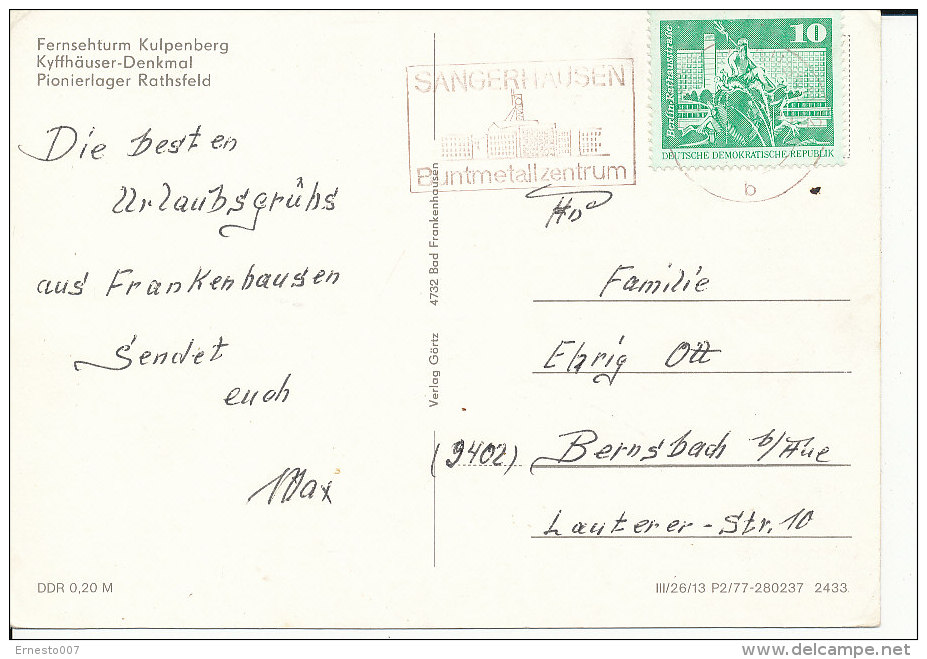 Fernsehturm Kulpenberg
Kyffhäuser-Denkmal
Pionierlager Rathsfeld
Die besten
Urlaubsgrühs
aus Frankenhausen
Sendet
euch
Max
DDR 0,20 M
Verlag Görtz 4732 Bad Frankenhausen
SANGERHAUSEN
Buntmetallzentrum
10
Berlin·Rathausstraße
DEUTSCHE DEMOKRATISCHE REPUBLIK
b
Familie
Ehrig Ott
(9402) Bernsbach b/Aue
Lauterer-Str. 10
III/26/13 P2/77-280237 2433
Ernesto007
delcampe.net